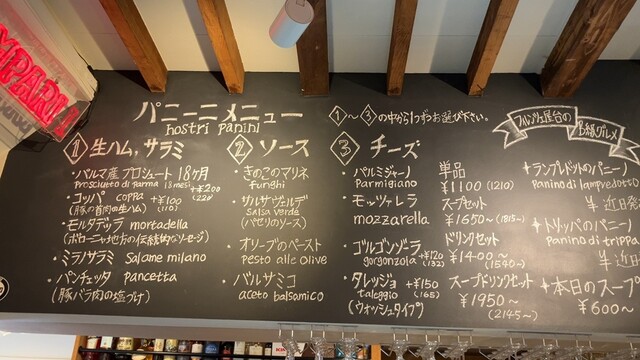 CAMPARI
パニーニメニュー
nostri panini
①～③の中から1つずつお選び下さい。
① 生ハム, サラミ
・パルマ産プロシュート 18ヶ月
Prosciutto di Parma 18mesi +¥200
(220)
・コッパ coppa +¥100
(豚の首肉の生ハム) (110)
・モルタデッラ mortadella
(ボローニャ地方の伝統的なソーセージ)
・ミラノサラミ Salame milano
・パンチェッタ pancetta
(豚バラ肉の塩づけ)
② ソース
・きのこのマリネ
funghi
・サルサヴェルデ
salsa verde
(パセリのソース)
・オリーブのペースト
pesto alle olive
・バルサミコ
aceto balsamico
③ チーズ
・パルミジャーノ
Parmigiano
・モッツァレラ
mozzarella
・ゴルゴンゾーラ
gorgonzola +¥120
(132)
・タレッジョ +¥150
taleggio (165)
(ウォッシュタイプ)
単品
¥1100 (1210)
スープセット
¥1650～ (1815～)
ドリンクセット
¥1400～
(1540～)
スープドリンクセット
¥1950～
(2145～)
フィレンツェ屋台のB級グルメ
+ランプレドットのパニーノ
Panino di lampredotto
¥ 近日発
+トリッパのパニーノ
Panino di trippa
¥ 近日
+本日のスープ
¥600～